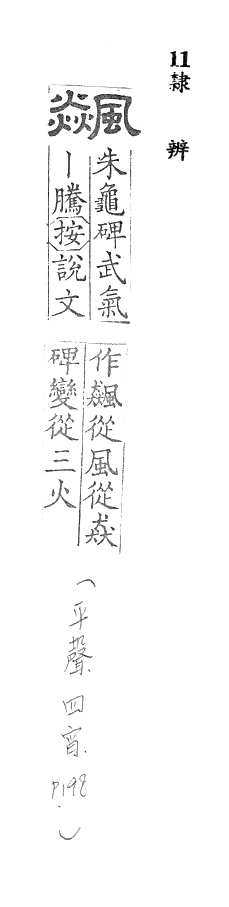 11隸辨
飇
朱龜碑武氣
｜騰按說文
作飆從風從猋
碑變從三火
(平聲.四宵.P198.)